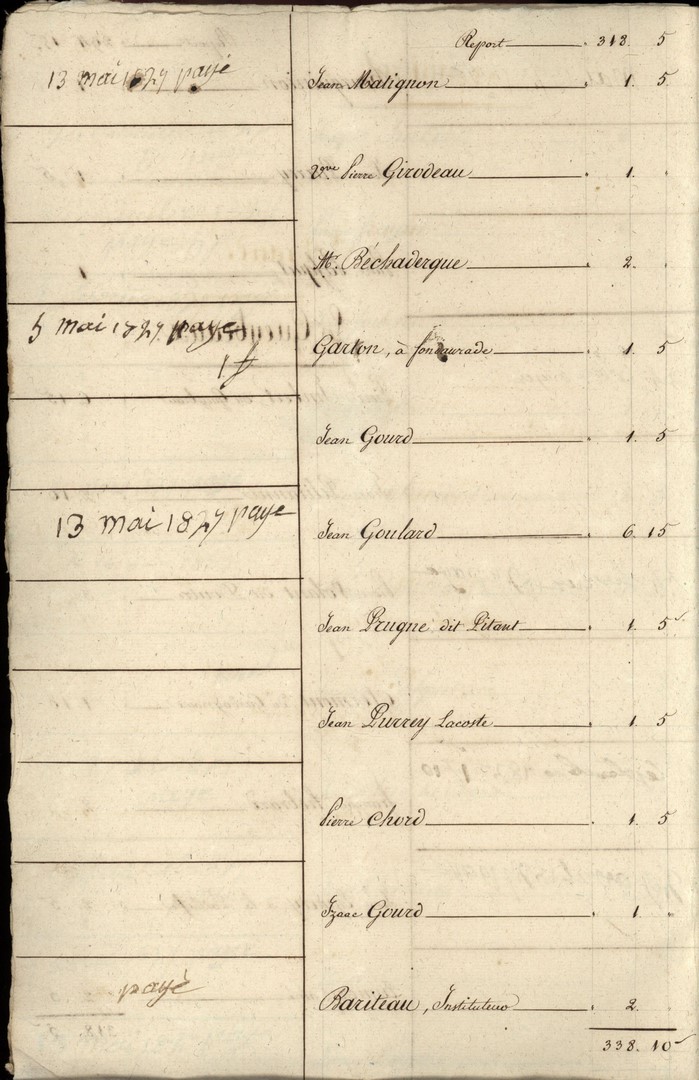 Report 318. 5
13 mai 1827 payé Jean Matignon 1. 5
Vve Pierre Girodeau 1.
Mr. Béchadergue 2.
5 mai 1827 payé Garlon, à fondaurade 1. 5
Jean Gourd 1. 5
13 mai 1827 payé Jean Goulard 6. 15
Jean Prugne dit Pitant 1. 5
Jean Purrey Lacoste 1. 5
Pierre Chord 1. 5
Izaac Gourd 1.
payé Bariteau, Instituteur 2.
338. 10